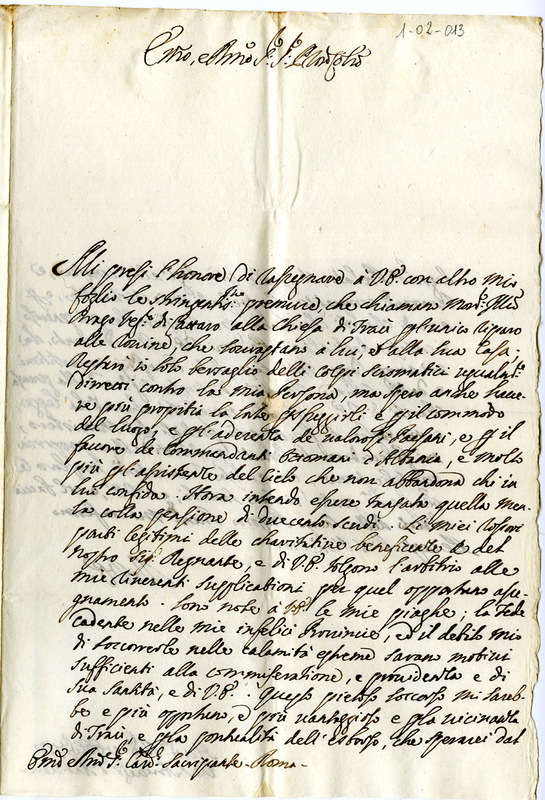 1-02-013
Emo, e Rmo Sr. Sr. Pron Colmo
Mi presi l'honore di rassegnare à V.E. con altro mio
foglio le stringentissime premure, che chiaman Monr. Ill.
Drago Vesco. di Cattaro alla Chiesa di Traù per unico riparo
alle rovine, che sovrastano à lui, et alla sua Casa;
Restarò io solo bersaglio delli colpi scismatici ugualmte
diretti contro la mia Persona, ma spero anche have
re più propitia la sorte per sfuggirli e per il commodo
del luogo, e per l'aderenza de valorosi Paesani, e per il
favore de Commendanti Ottomani d'Albania, e molto
più per l'assistenza del Cielo che non abbandona chi in
lui confida. Hora intendo essere tassata quella Men
sa colla pensione di duecento scudi. Li miei rossori
parti legitimi delle charitative beneficenze del
nostro Regnante, e di V.E. tolgono l'arbitrio alle
mie riverenti supplicationi per quel opportuno asse
gnamento. Sono note à V.E. le mie piaghe; la Fede
cadente nelle mie infelici Provincie, ed il debito mio
di soccorrerle nelle calamità estreme saran motivi
sufficienti alla commiseratione, e providenza e di
Sua Santità, e di V.E. Questo pietoso soccorso mi sareb
be e più opportuno, e più vantaggioso e per la vicinanza
di Traù, e per la pontualità dell'esborso, che sperarei dal
Emo Rmo Sr. Card. Sacripante - Roma -